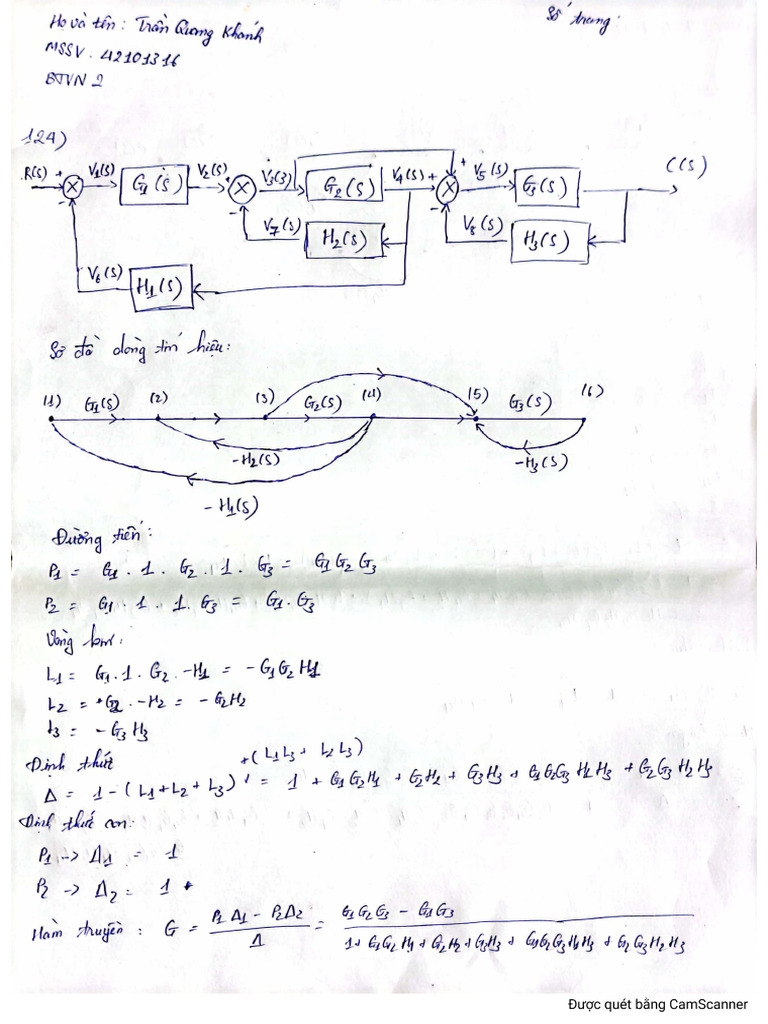 Họ và tên : Trần Quang Khánh
Số trang:
MSSV : 42101316
BTVN 2
124)
R(s) + V1(s) G1(s) V2(s) V3(s) G2(s) V4(s) + + V5(s) G3(s) C(s)
- - V7(s) H2(s) - V8(s) H3(s)
V6(s) H1(s)
Sơ đồ dòng tín hiệu:
(1) G1(s) (2) (3) G2(s) (4) (5) G3(s) (6)
-H2(s) -H3(s)
-H1(s)
Đường tiến:
P1 = G1 . 1 . G2 . 1 . G3 = G1G2G3
P2 = G1 . 1 . 1 . G3 = G1 . G3
Vòng kín:
L1 = G1 . 1 . G2 . -H1 = - G1G2H1
L2 = G2 . -H2 = - G2H2
L3 = - G3H3
Định thức +(L1L3 + L2L3)
Δ = 1 - (L1 + L2 + L3) = 1 + G1G2H1 + G2H2 + G3H3 + G1G2G3H1H3 + G2G3H2H3
Định thức con:
P1 -> Δ1 = 1
P2 -> Δ2 = 1
Hàm truyền : G = P1Δ1 - P2Δ2 / Δ = G1G2G3 - G1G3 / 1 + G1G2H1 + G2H2 + G3H3 + G1G2G3H1H3 + G2G3H2H3
Được quét bằng CamScanner